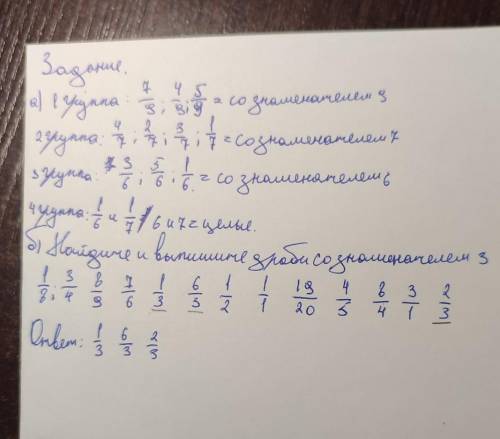 Задание.
а) 1 группа: 7/9; 4/9; 5/9 = со знаменателем 9
2 группа: 4/7; 2/7; 3/7; 1/7 = со знаменателем 7
3 группа: 3/6; 5/6; 1/6 = со знаменателем 6
4 группа: 1/6 и 1/7 6 и 7 = целые.
б) Найдите и выпишите дроби со знаменателем 3
1/8; 3/4 8/9 7/6 1/3 6/3 1/2 1/1 19/20 4/5 8/4 3/1 2/3
Ответ: 1/3 6/3 2/3